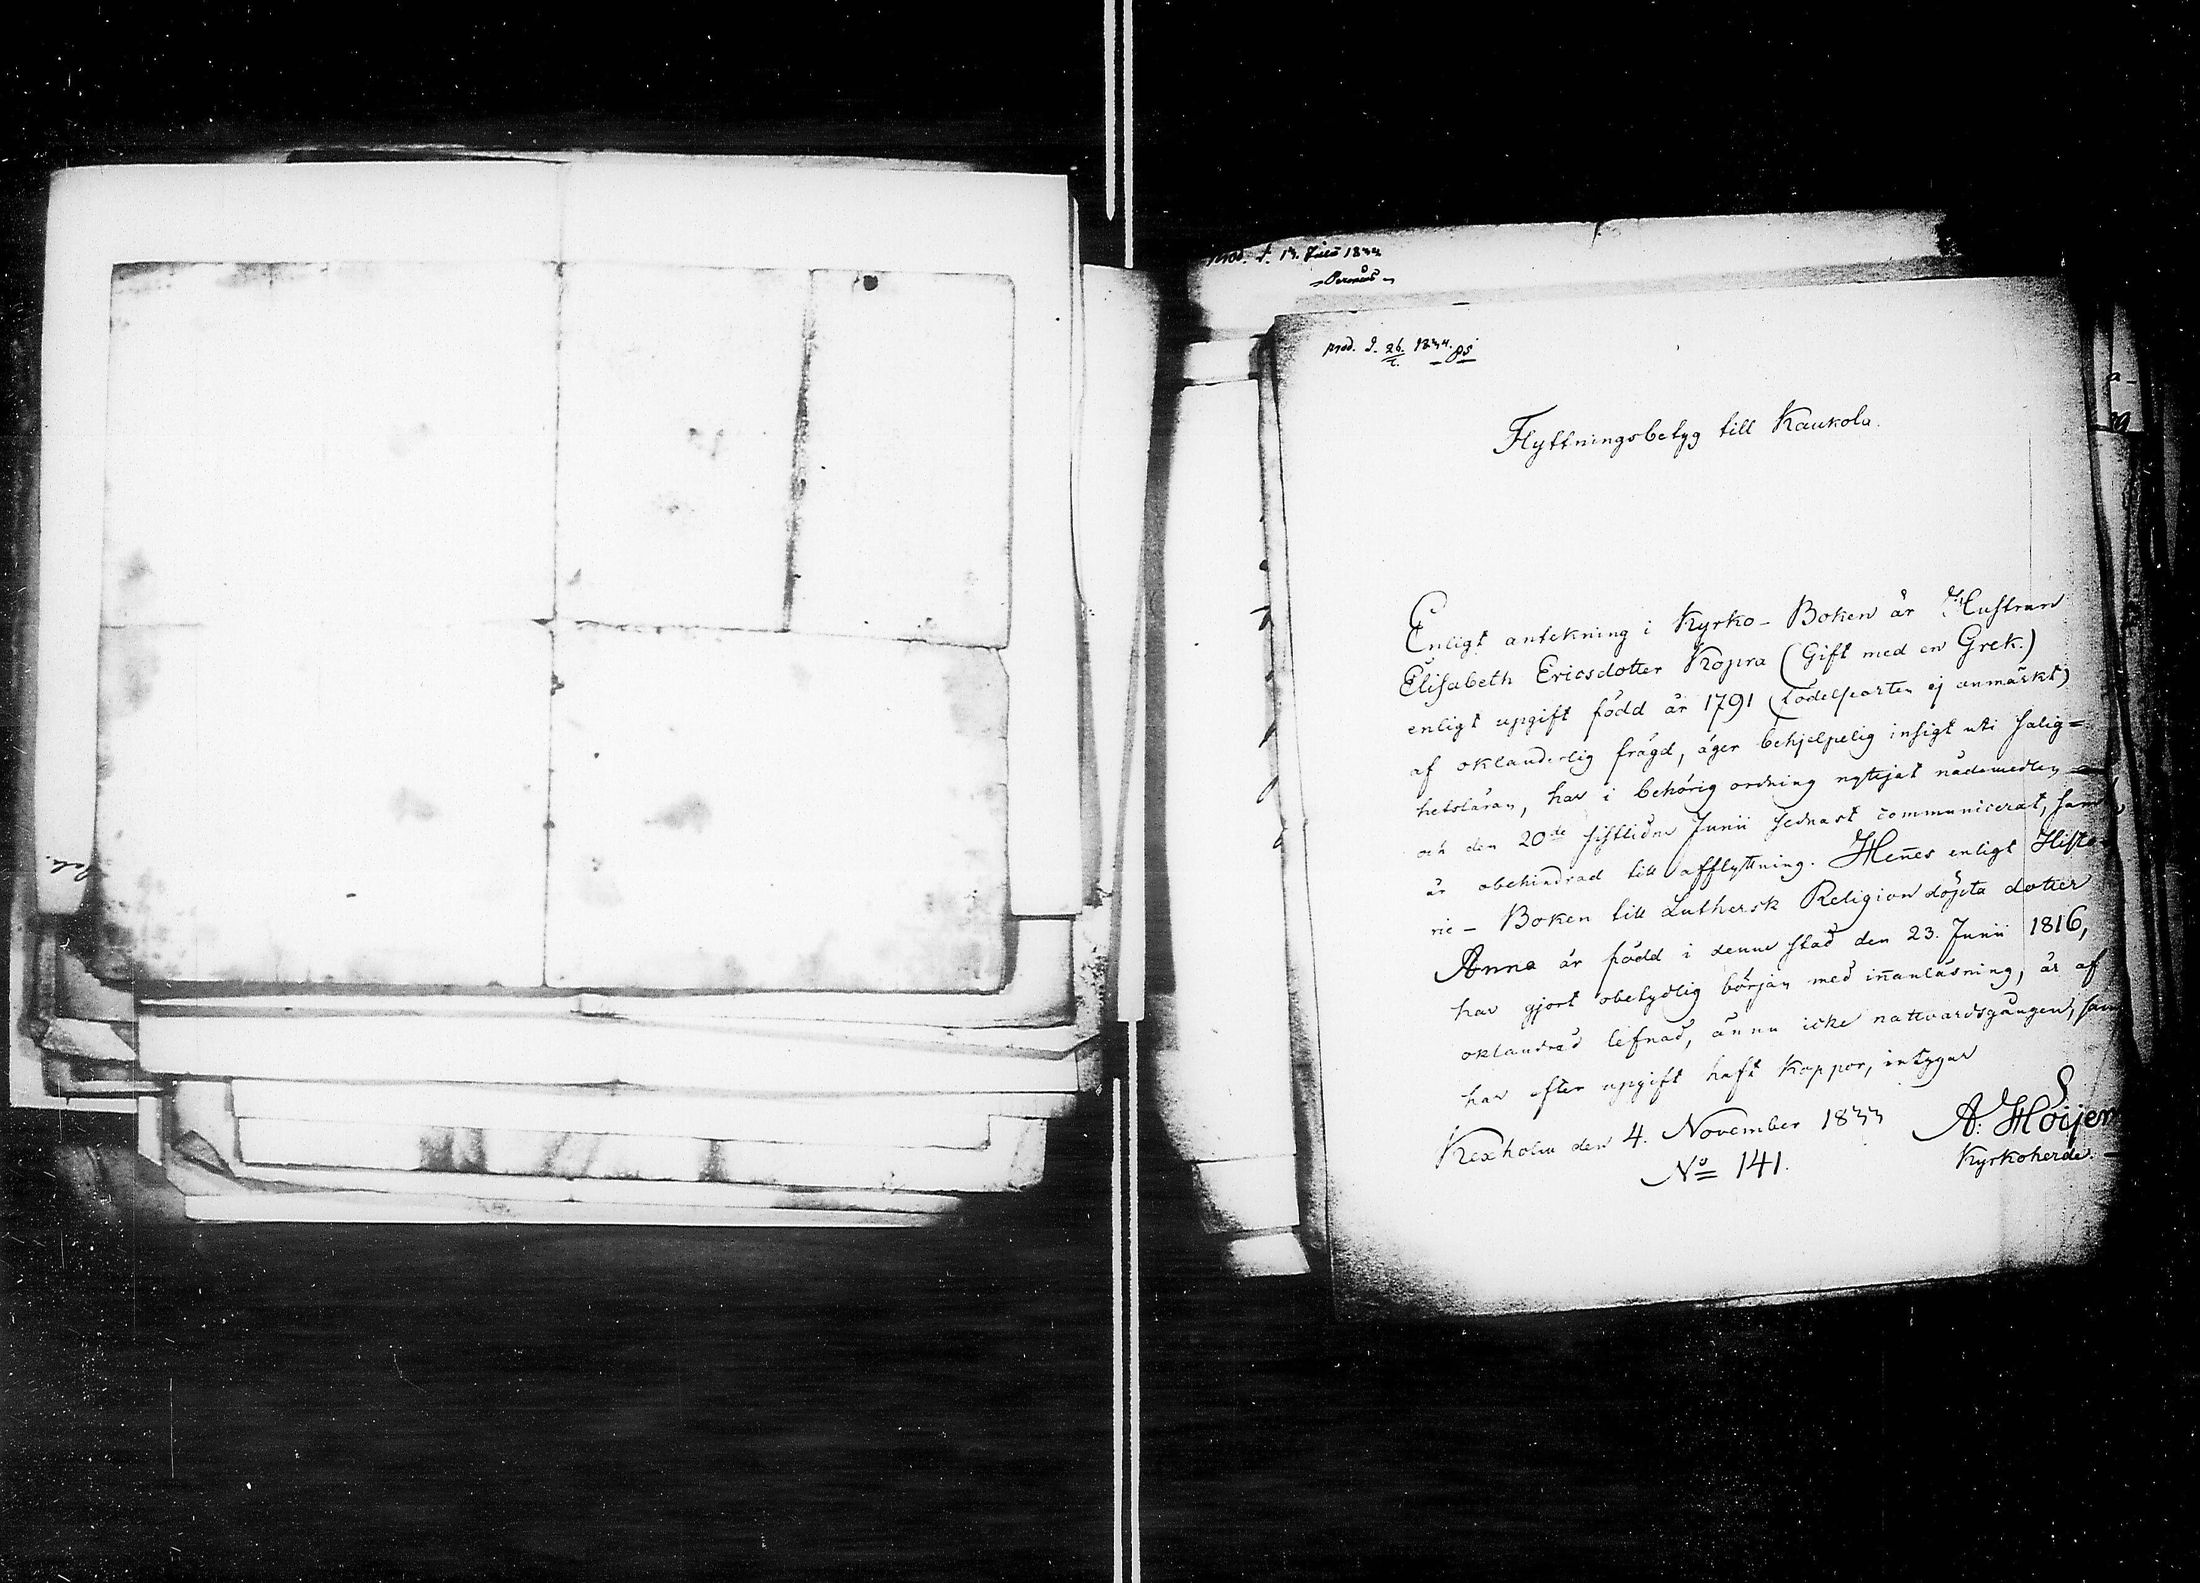 prod. d. 26. 1834.
Flyttningsbetyg till Kaukola.
Enligt antekning i Kyrko-Boken är Hustrun
Elisabeth Ericsdotter Kopra (Gift med en Grek.)
enligt upgift född år 1791 (födelseorten ej anmärkt)
af oklanderlig frägd, äger behjelpelig insigt uti salig=
hetsläran, har i behörig ordning nyttjat nådemedlen
och den 20de sistlidne Junii sednast communicerat, samt
är obehindrad till afflyttning. Hen̄es enligt Histo-
rie-Boken till Luthersk Religion döpta dotter
Anna är född i denne stad den 23. Junii 1816,
har gjort obetydlig början med in̄anläsning, är af
oklandrad lefnad, ännu icke nattvardsgången, samt
har efter upgift haft Koppor, intygar
Kexholm den 4. November 1833
A: Höijer
Kyrkoherde.
No 141.